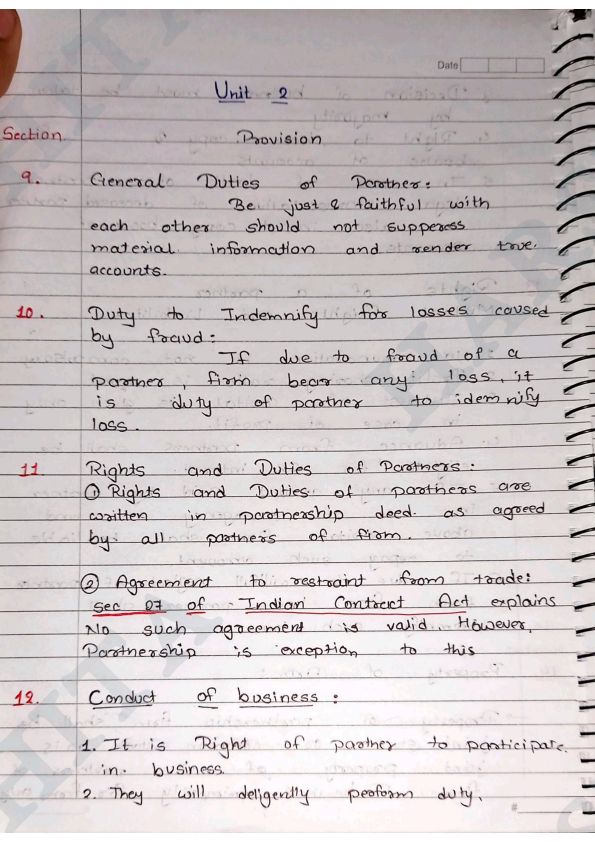 Date
Unit - 2
Section Provision
9. General Duties of Partner:
Be just & faithful with
each other should not supperess
material information and render true
accounts.
10. Duty to Indemnify for losses caused
by fraud:
If due to fraud of a
partner, firm bear any loss, it
is duty of partner to idemnify
loss.
11 Rights and Duties of Partners:
① Rights and Duties of parthers are
written in partnership deed as agreed
by all partners of firm.
② Agreement to restraint from trade:
sec 27 of Indian Contract Act explains
No such agreement is valid. However,
Partnership is exception to this
12. Conduct of business:
1. It is Right of partner to participate
in business.
2. They will deligently perform duty.